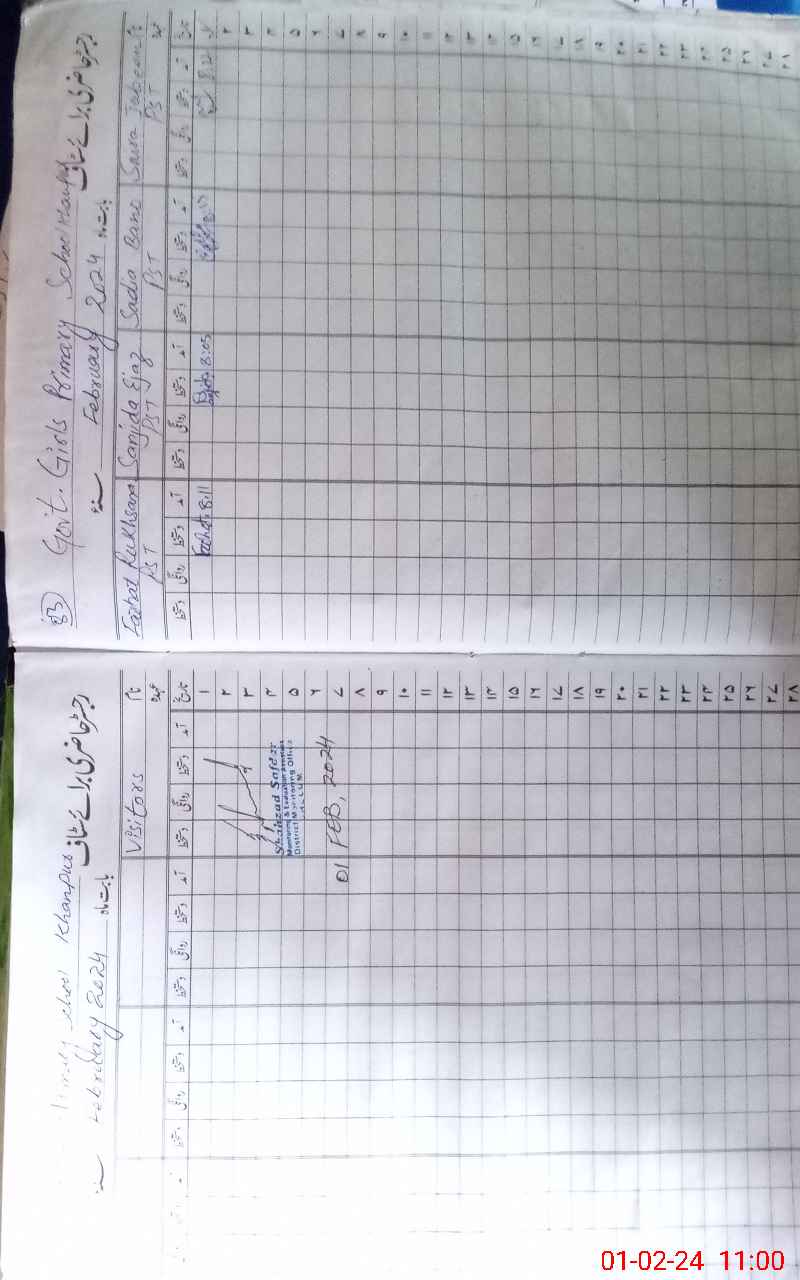 83
Govt. Girls Primary School Khanpur
رجسٹر حاضری برائے سٹاف
February 2024 بابت ماہ
سنہ
Farhat Rukhsana Sanjida Ejaz Sadia Bano Saira Tabassum نام
PST PST PST PST عہدہ
تاریخ آمد دستخط روانگی دستخط آمد دستخط روانگی دستخط آمد دستخط روانگی دستخط آمد دستخط روانگی دستخط
۱ Farhat 8:11 8:05
۲
۳
۴
۵
۶
۷
۸
۹
۱۰
۱۱
۱۲
۱۳
۱۴
۱۵
۱۶
۱۷
۱۸
۱۹
۲۰
۲۱
۲۲
۲۳
۲۴
۲۵
۲۶
۲۷
۲۸
School Khanpur
رجسٹر حاضری برائے سٹاف
February 2024 بابت ماہ
سنہ
Visitors نام
عہدہ
تاریخ آمد دستخط روانگی دستخط آمد دستخط روانگی دستخط آمد دستخط روانگی دستخط
۱
۲
۳
۴ Shahzad Safdar
Monitoring & Evaluation Assistant
۵ District Monitoring Office
۶
۷ 01 FEB, 2024
۸
۹
۱۰
۱۱
۱۲
۱۳
۱۴
۱۵
۱۶
۱۷
۱۸
۱۹
۲۰
۲۱
۲۲
۲۳
۲۴
۲۵
۲۶
۲۷
۲۸
01-02-24 11:00